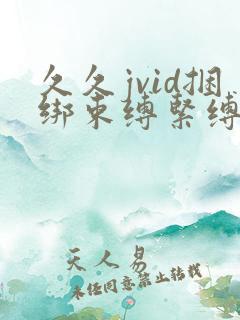 久久jvid捆
绑束缚紧缚
天人易
未经同意禁止转载